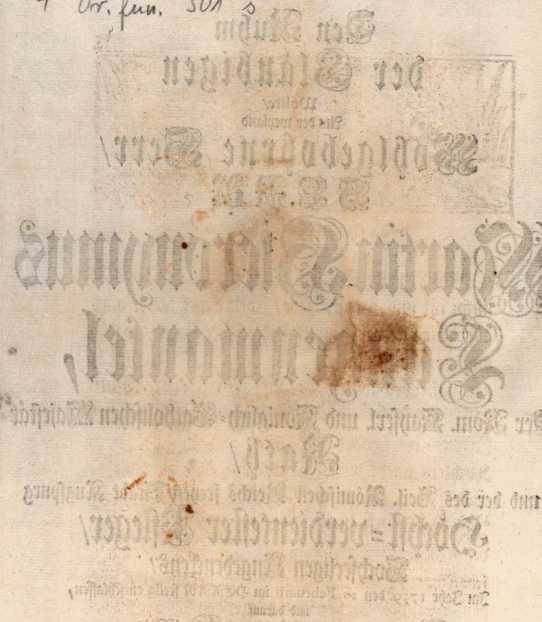 4 Or. fun. 501
Den Ruhm
der Gläubigen
Wolte/
Als der weyland
Wohlgebohrne Herr/
HERR
Martin Hieronymus
Langenmantel,
Der Röm. Kayserl. und Königlich-Catholischen Majestät
Rath/
und der des Heil. Römischen Reichs freyen Stadt Augspurg
Höchst-verdientester Pfleger/
Hochseeligen Angedenckens/
Im Jahr den Februarii im seelig entschlaffen,
und darauf